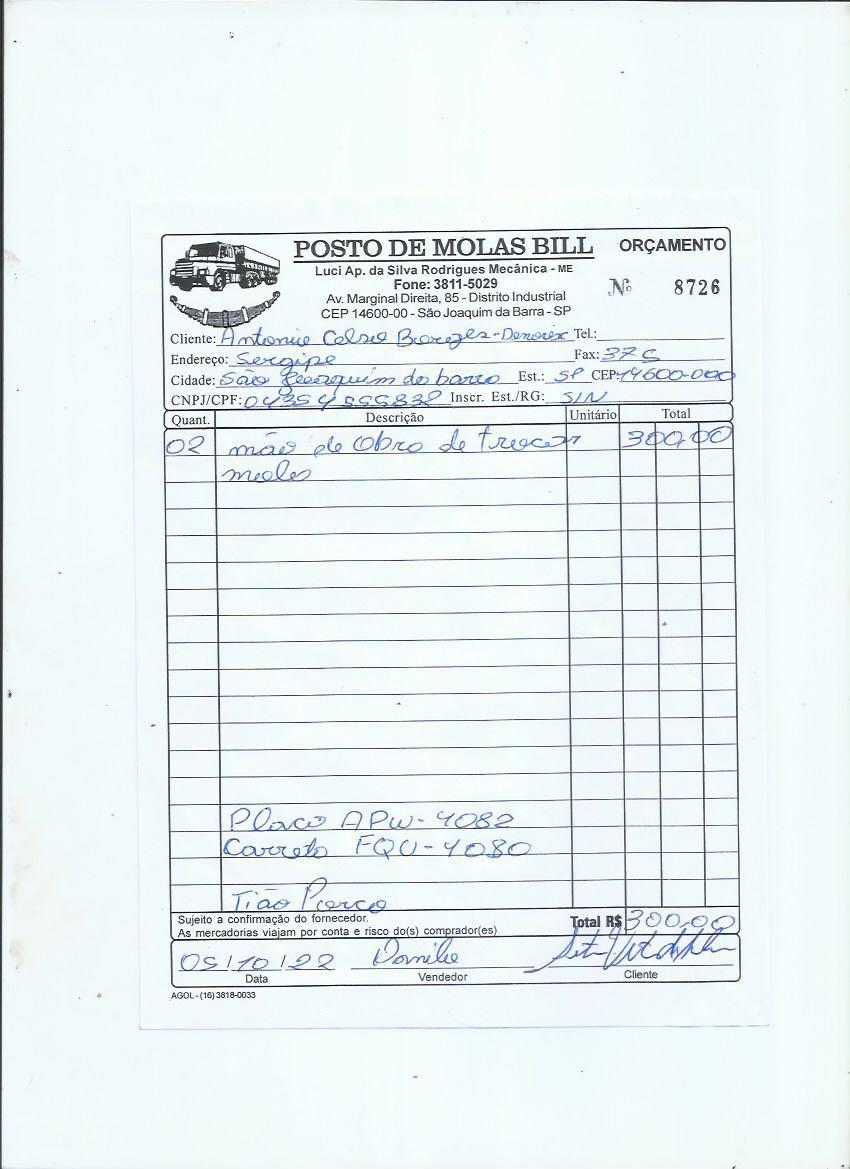 POSTO DE MOLAS BILL ORÇAMENTO
Luci Ap. da Silva Rodrigues Mecânica - ME
Fone: 3811-5029
Nº 8726
Av. Marginal Direita, 85 - Distrito Industrial
CEP 14600-00 - São Joaquim da Barra - SP
Cliente: Antonio Celso Borges- Tel.:
Endereço: Sergipe Fax: 375
Cidade: São Joaquim da barra Est.: SP CEP 14600-000
CNPJ/CPF: Inscr. Est./RG: S/N
Quant. Descrição Unitário Total
02 mão de obra de trocar 300,00
molas
Placa APW-4082
Carreta FQU-4080
Tião
Sujeito a confirmação do fornecedor.
As mercadorias viajam por conta e risco do(s) comprador(es)
Total R$ 300,00
05/10/22 Danilo
Data Vendedor Cliente
AGOL - (16) 3818-0033